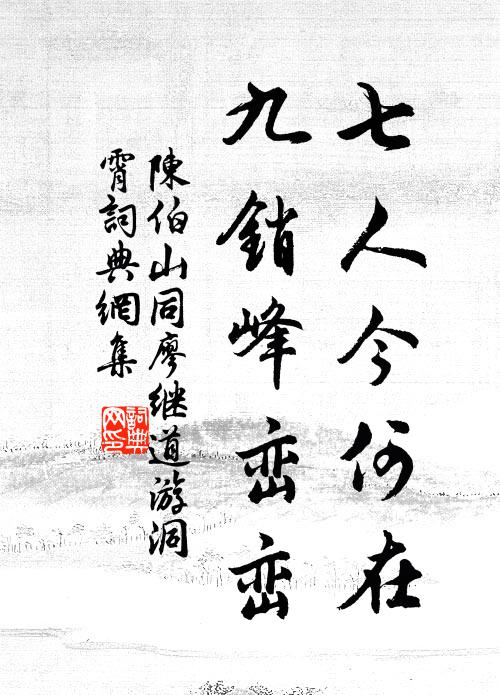 七人今何在
九銷峰峦峦
陳伯山同廖继道游洞
霄詞典網集
詞典
网印